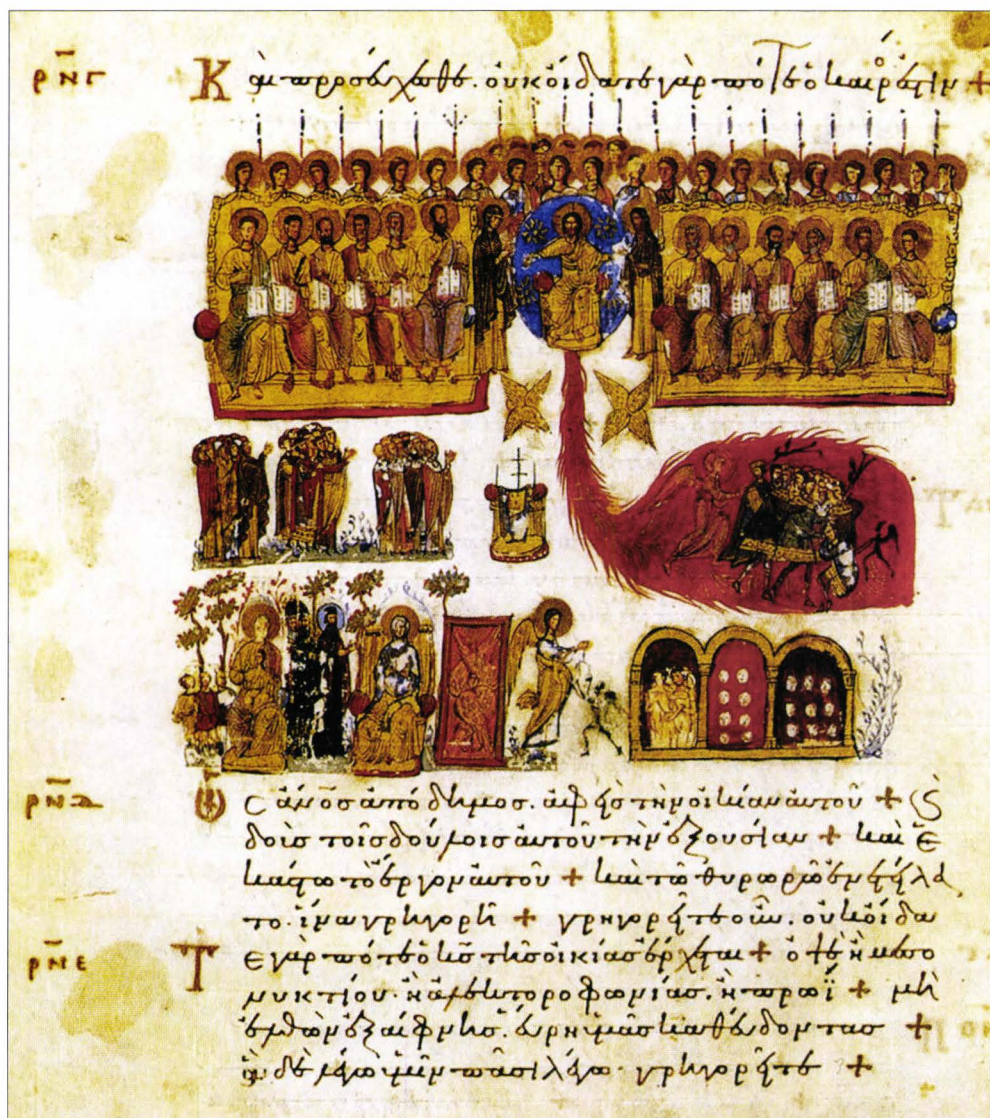 ρ̄ν̄γ + Καὶ προσεύχεσθε. οὐκ οἴδατε γὰρ πότε ὁ καιρός ἐστιν +
ρ̄ν̄δ Ὡς ἄν̅ο̅ς ἀπόδημος. ἀφεὶς τὴν οἰκίαν αὐτοῦ + ϗ
δοὺς τοῖς δούλοις αὐτοῦ τὴν ἐξουσίαν + καὶ ἑ
κάστω τὸ ἔργον αὐτοῦ + καὶ τῶ θυρωρῶ ἐνετείλα
το. ἵνα γρηγορῆ + γρηγορεῖτε οὖν. οὐκ οἴδα
ρ̄ν̄ε Τε γὰρ πότε ὁ κ̅ς̅ τῆς οἰκίας ἔρχεται + ὀψὲ ἢ μεσο
νυκτίου. ἢ ἀλεκτοροφωνίας. ἢ πρωΐ + μὴ
ἐλθὼν ἐξαίφνης. εὕρη ὑμᾶς καθεύδοντας +
ἃ δὲ λέγω ὑμῖν πᾶσι λέγω. γρηγορεῖτε +